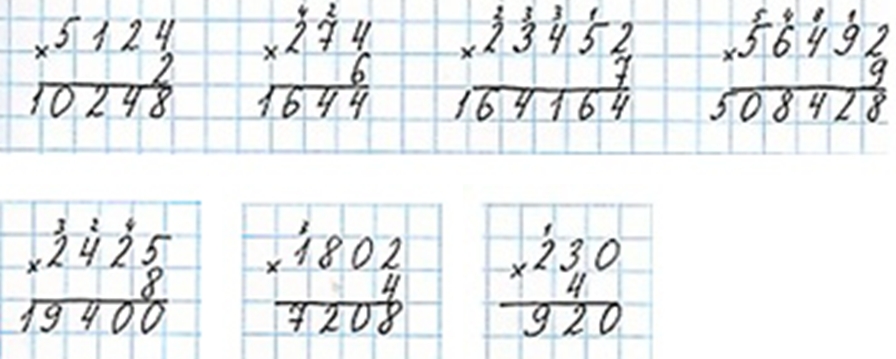 4 2 2 3 3 1 5 4 8 1
× 5124 × 274 × 23452 × 56492
2 6 7 9
10248 1644 164164 508428
3 2 4 3 1
× 2425 × 1802 × 230
8 4 4
19400 7208 920